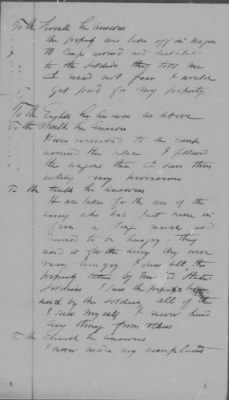 To the Seventh he answers
the property was taken off in wagons
to camp around and
to the soldiers they told me
I need not fear I would
get paid for my property
To the Eighth he answers as above
To the Ninth he answers
It was removed to the camp
around the place I followed
the wagons that I saw them
my provisions
To the tenth he answers
It was taken for the use of the
army who had just come in
from a long march and
seemed to be hungry they
used it for the army they were
very hungry I saw all the
property taken by United States
soldiers I saw the property being
used by the soldiers all of this
I saw myself I never heard
any thing from others
To the Eleventh he answers
I never made any complaint